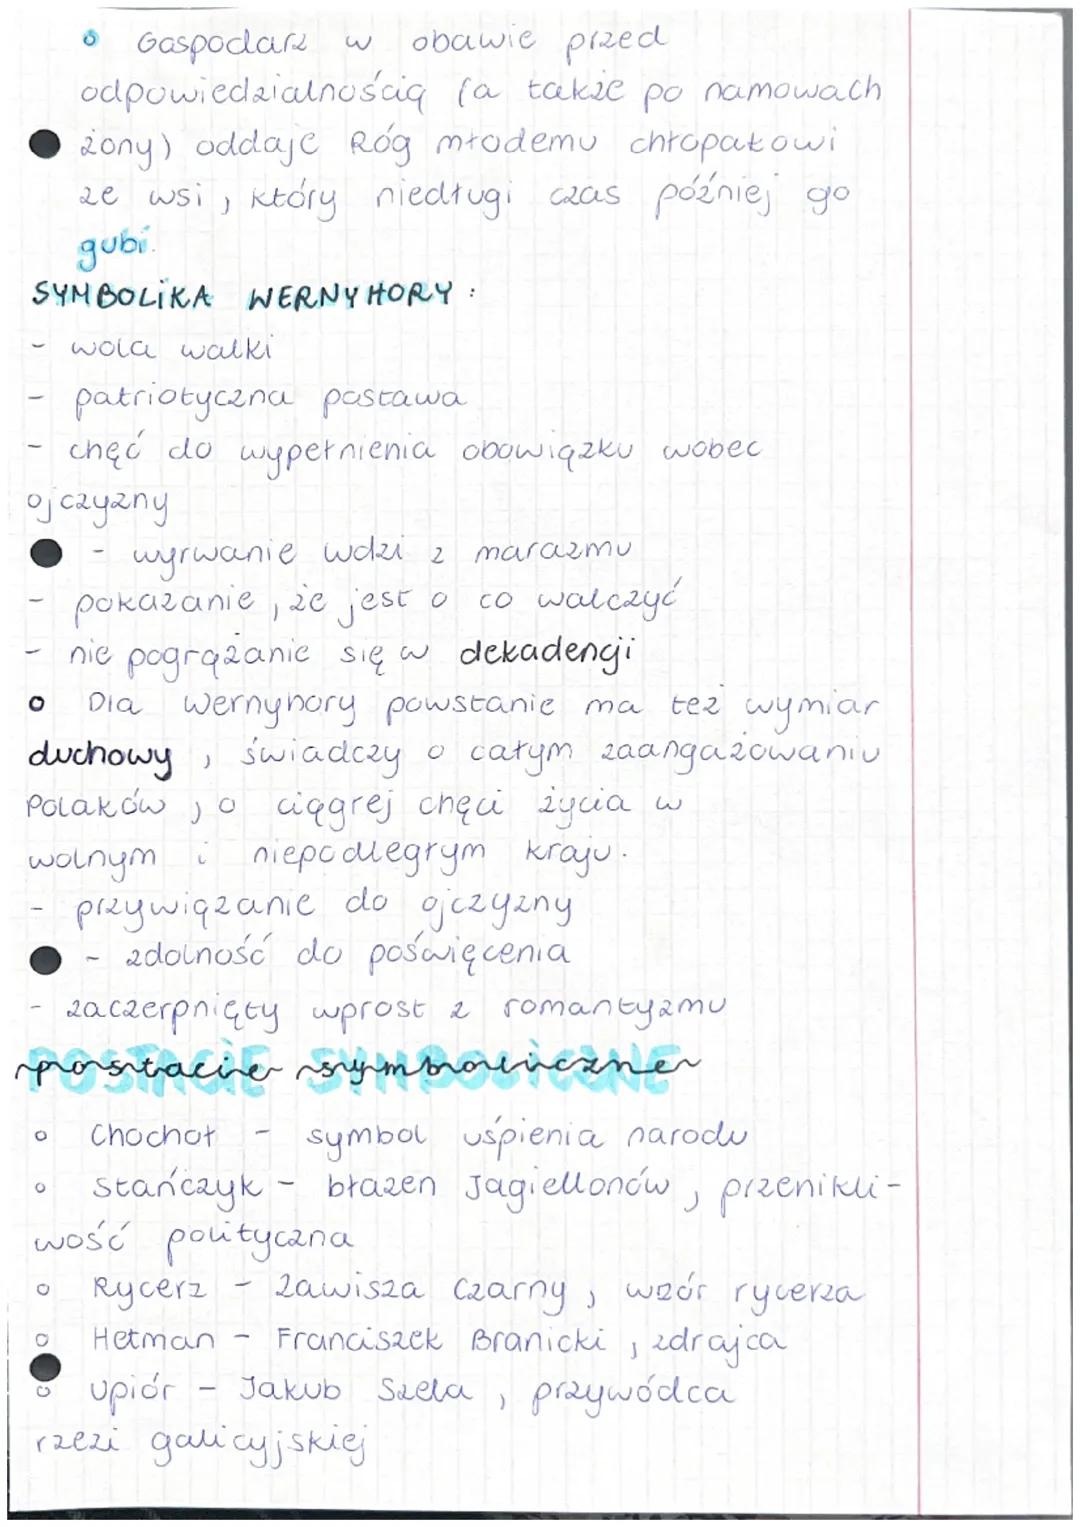 Gospodarz w obawie przed
odpowiedzialnością (a także po namowach
żony) oddaje Róg młodemu chłopakowi
ze wsi, który niedługi czas później go
gubi.
SYMBOLIKA WERNYHORY:
- wola walki
- patriotyczna postawa
- chęć do wypełnienia obowiązku wobec
ojczyzny
- wyrwanie wdzi z marazmu
- pokazanie, że jest o co walczyć
- nie pogrążanie się w dekadencji
Dla Wernyhory powstanie ma też wymiar
duchowy, świadczy o całym zaangażowaniu
Polaków, o ciągłej chęci życia w
wolnym i niepodległym kraju.
- przywiązanie do ojczyzny
- zdolność do poświęcenia
- zaczerpnięty wprost z romantyzmu
POSTACIE SYMBOLICZNE
Chochoł - symbol uśpienia narodu
Stańczyk - błazen Jagiellonów, przenikli-
wość polityczna
Rycerz - Zawisza Czarny, wzór rycerza
Hetman - Franciszek Branicki, zdrajca
Upiór - Jakub Szela, przywódca
rzezi galicyjskiej